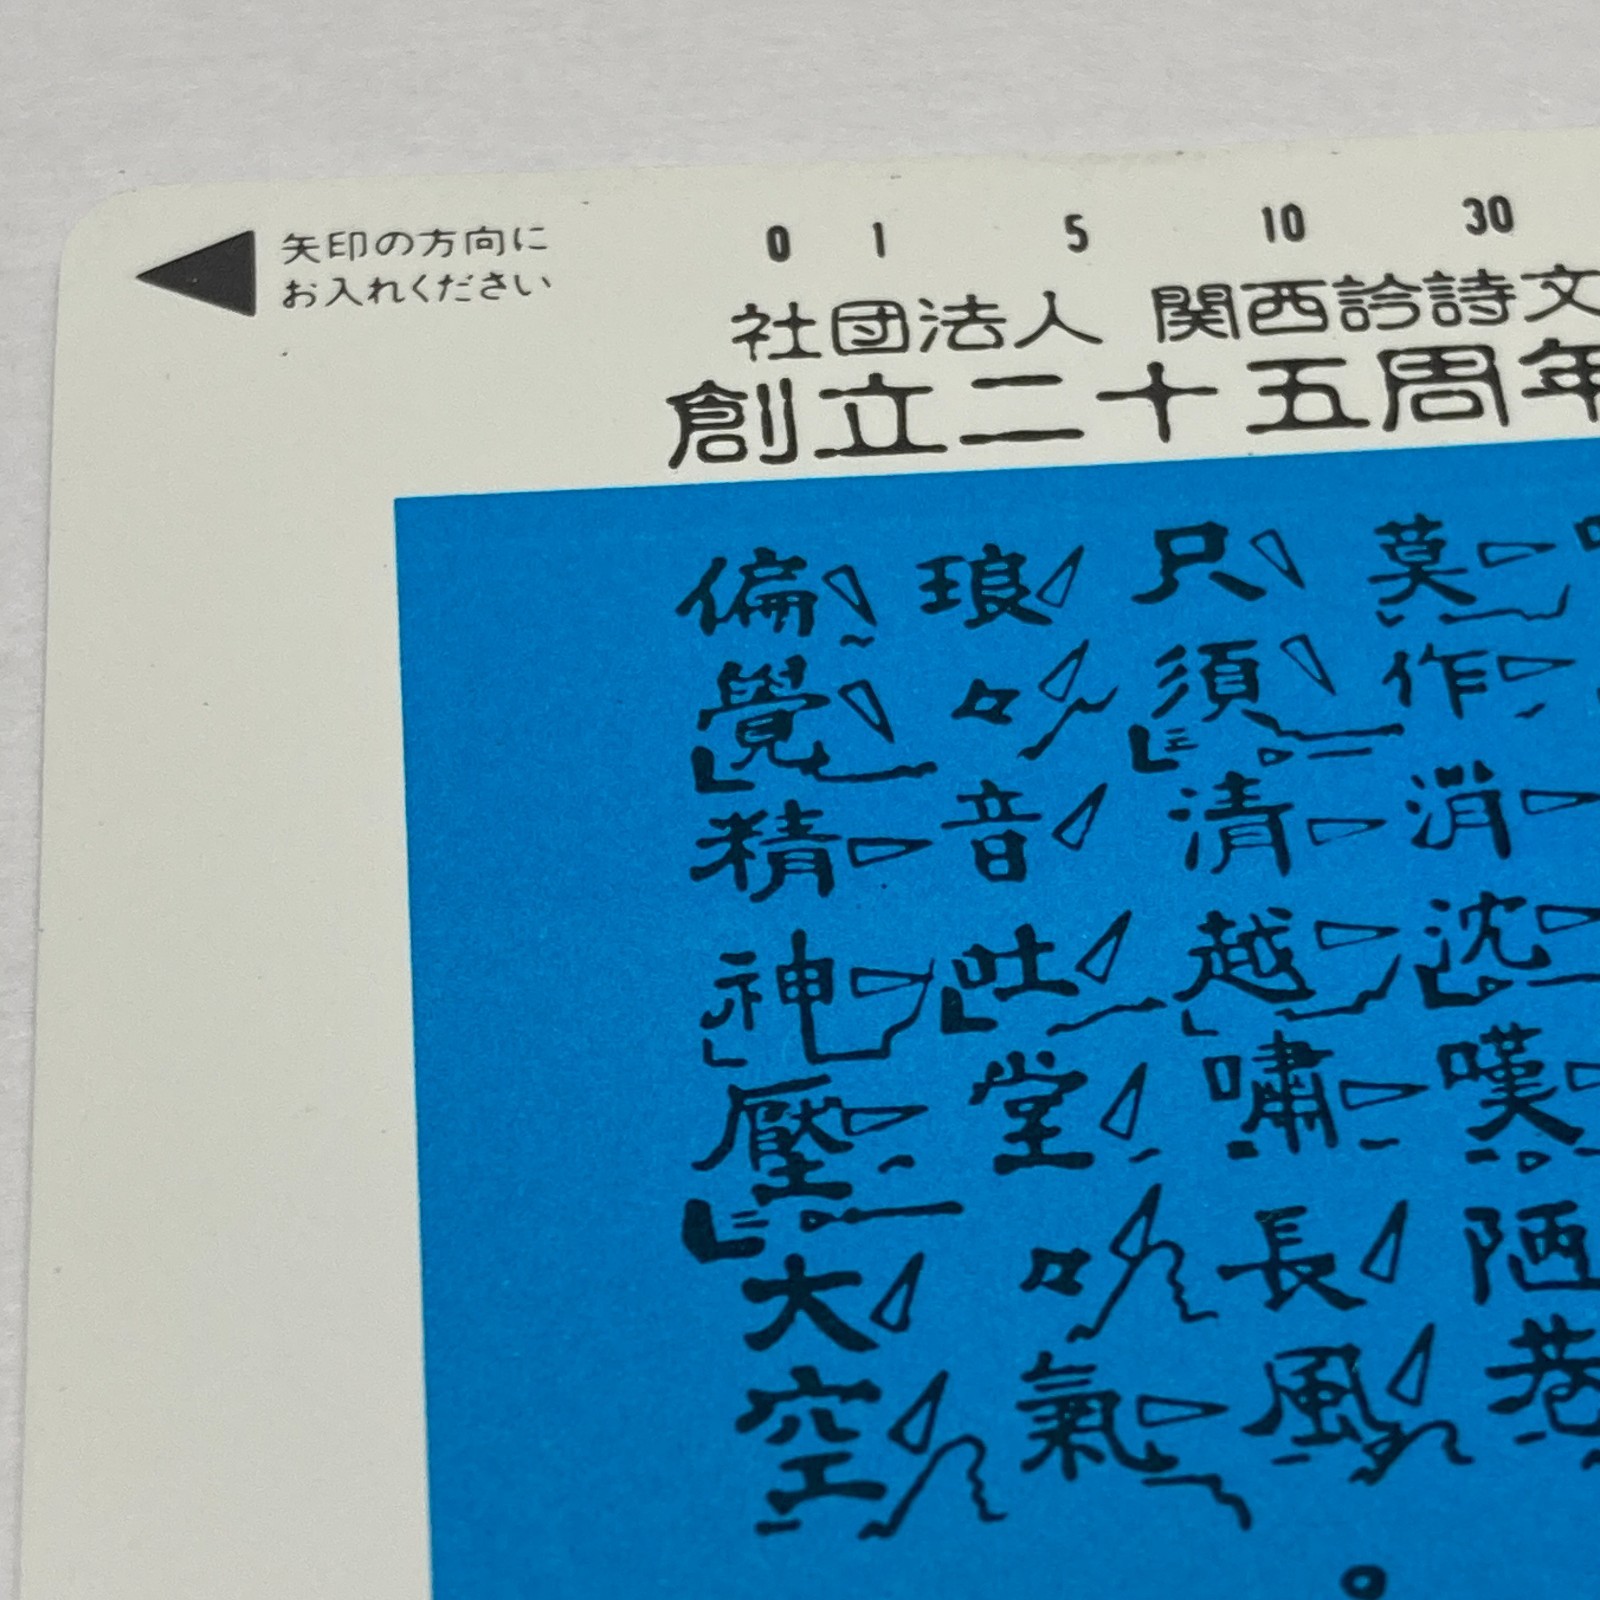 矢印の方向に
お入れください
0 1 5 10 30
社団法人 関西訡詩文
創立二十五周年
莫作消沈嘆陋巷
只須清越嘯長風
琅々音吐堂々氣
偏覺精神壓大空